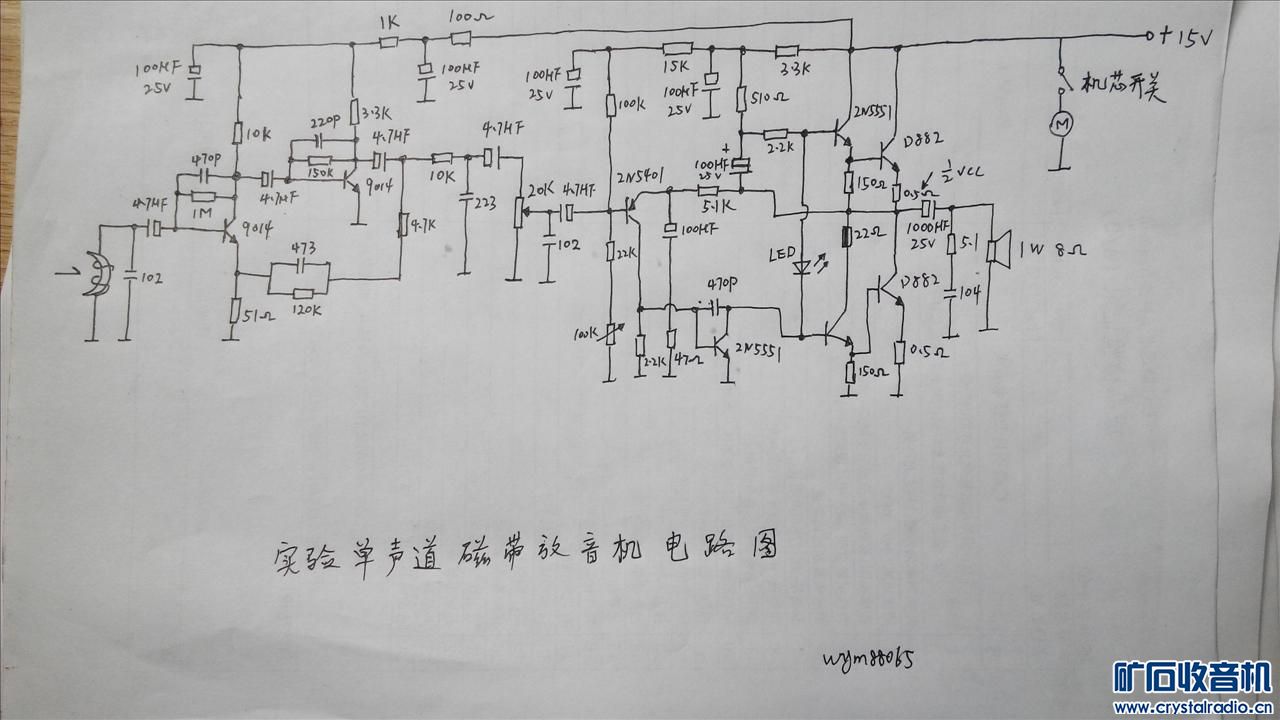 1K
100Ω
+15V
100HF
25V
100HF
25V
100HF
25V
15K
100HF
25V
3.3K
机芯开关
M
220P
3.3K
10K
4.7HF
4.7HF
100K
510Ω
2N5551
470P
150K
9014
10K
2.2K
D882
1M
4.7HF
100HF
25V
1/2 VCC
4.7HF
9014
223
20K
4.7HF
2N5401
5.1K
150Ω
0.5Ω
4.7K
100HF
22Ω
1000HF
25V
5.1
1W 8Ω
102
473
102
22K
LED
D882
120K
470P
104
51Ω
100K
2.2K
47Ω
2N5551
150Ω
0.5Ω
实验单声道磁带放音机电路图
wym88065
矿石收音机
www.crystalradio.cn